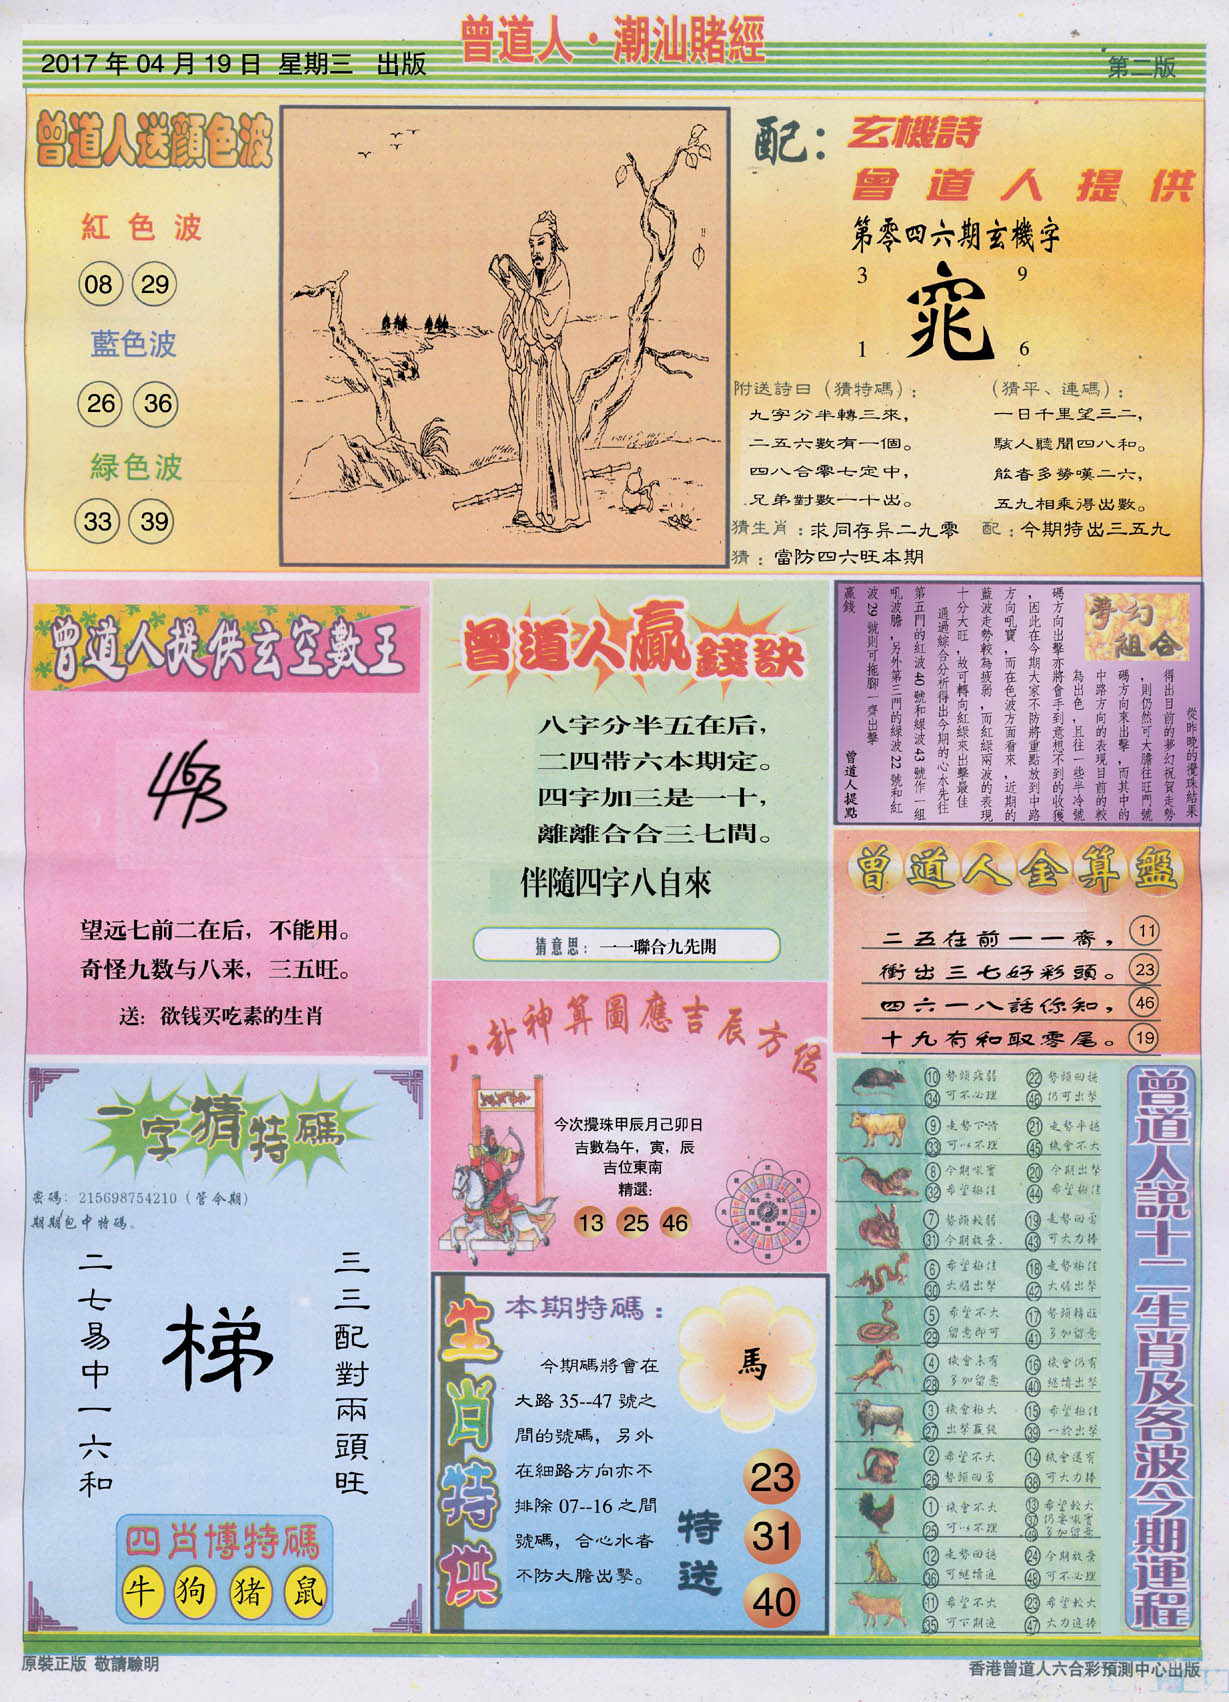 曾道人·潮汕賭經
2017年04月19日 星期三 出版
第二版
曾道人送顏色波
紅色波
08 29
藍色波
26 36
緑色波
33 39
配：玄機詩
曾道人提供
第零四六期玄機字
3 9
窕
1 6
附送詩日（猜特碼）：
九字分半轉三來，
二五六數有一個。
四八合零七定中，
兄弟對數一十出。
（猜平、連碼）：
一日千里望三二，
駭人聽聞四八和。
能者多勞嘆二六，
五九相乘得出數。
猜生肖：求同存异二九零
配：今期特出三五九
猜：當防四六旺本期
曾道人提供玄空數王
望远七前二在后，不能用。
奇怪九数与八来，三五旺。
送：欲钱买吃素的生肖
曾道人贏錢訣
八字分半五在后，
二四带六本期定。
四字加三是一十，
離離合合三七間。
伴隨四字八自來
猜意思：一一聯合九先開
夢幻組合
從昨晚的攪珠結果
得出目前的夢幻祝賀走勢
，則仍然可大膽往旺門號
碼方向來出擊，而其中的
中路方向的表現目前的較
為出色，且往一些半冷號
碼方向出擊亦將會手到意想不到的收獲
，因此在今期大家不防將重點放到中路
方向吼寶，而在色波方面看來，近期的
藍波走勢較為疲弱，而紅綠兩波的表現
十分大旺，故可轉向紅綠來出擊最佳
通過綜合分析得出今期的心水先往
第五門的紅波40號和綠波43號作一組
吼波膽，另外第三門的綠波22號和紅
波29號則可拖腳一齊出擊
贏錢
曾道人提點
曾道人金算盤
二五在前一一齋， 11
衝出三七好彩頭。 23
四六一八話你知， 46
十九有和取零尾。 19
八卦神算圖應吉辰方位
今次攪珠甲辰月己卯日
吉數為午，寅，辰
吉位東南
精選：
13 25 46
一字猜特碼
密碼：215698754210（管令期）
期期包中特碼。
二七易中一六和
梯
三三配對兩頭旺
四肖博特碼
牛 狗 猪 鼠
生肖特供
本期特碼：
今期碼將會在
大路35--47號之
間的號碼，另外
在細路方向亦不
排除07--16之間
號碼，合心水者
不防大膽出擊。
馬
特送
23
31
40
曾道人說十二生肖及各波今期運程
10 勢頭疲弱 22 勢頭回穩
34 可不必理 46 仍可出擊
9 走勢下滑 21 走勢平穩
33 可以不理 45 機會不大
8 今期吼寶 20 今期出擊
32 希望極佳 44 希望極佳
7 勢頭較弱 19 走勢回勇
31 今期放棄 43 可大力捧
6 希望極佳 18 走勢極佳
30 大膽出擊 42 大膽出擊
5 希望不大 17 勢頭轉旺
29 留意即可 41 多加留意
4 機會未有 16 機會仍有
28 多加留意 40 繼續出擊
3 機會極大 15 希望極佳
27 出擊贏錢 39 一於出擊
2 希望不大 14 機會還有
26 勢頭回勇 38 可大力捧
1 機會不大 13 希望較大
25 可以不理 37 仍要吼寶
49 多加留意
12 走勢回穩 24 今期放棄
36 可繼續追 48 可不必理
11 希望不大 23 希望較大
35 可下期追 47 大力追捧
原裝正版 敬請驗明
香港曾道人六合彩預測中心出版